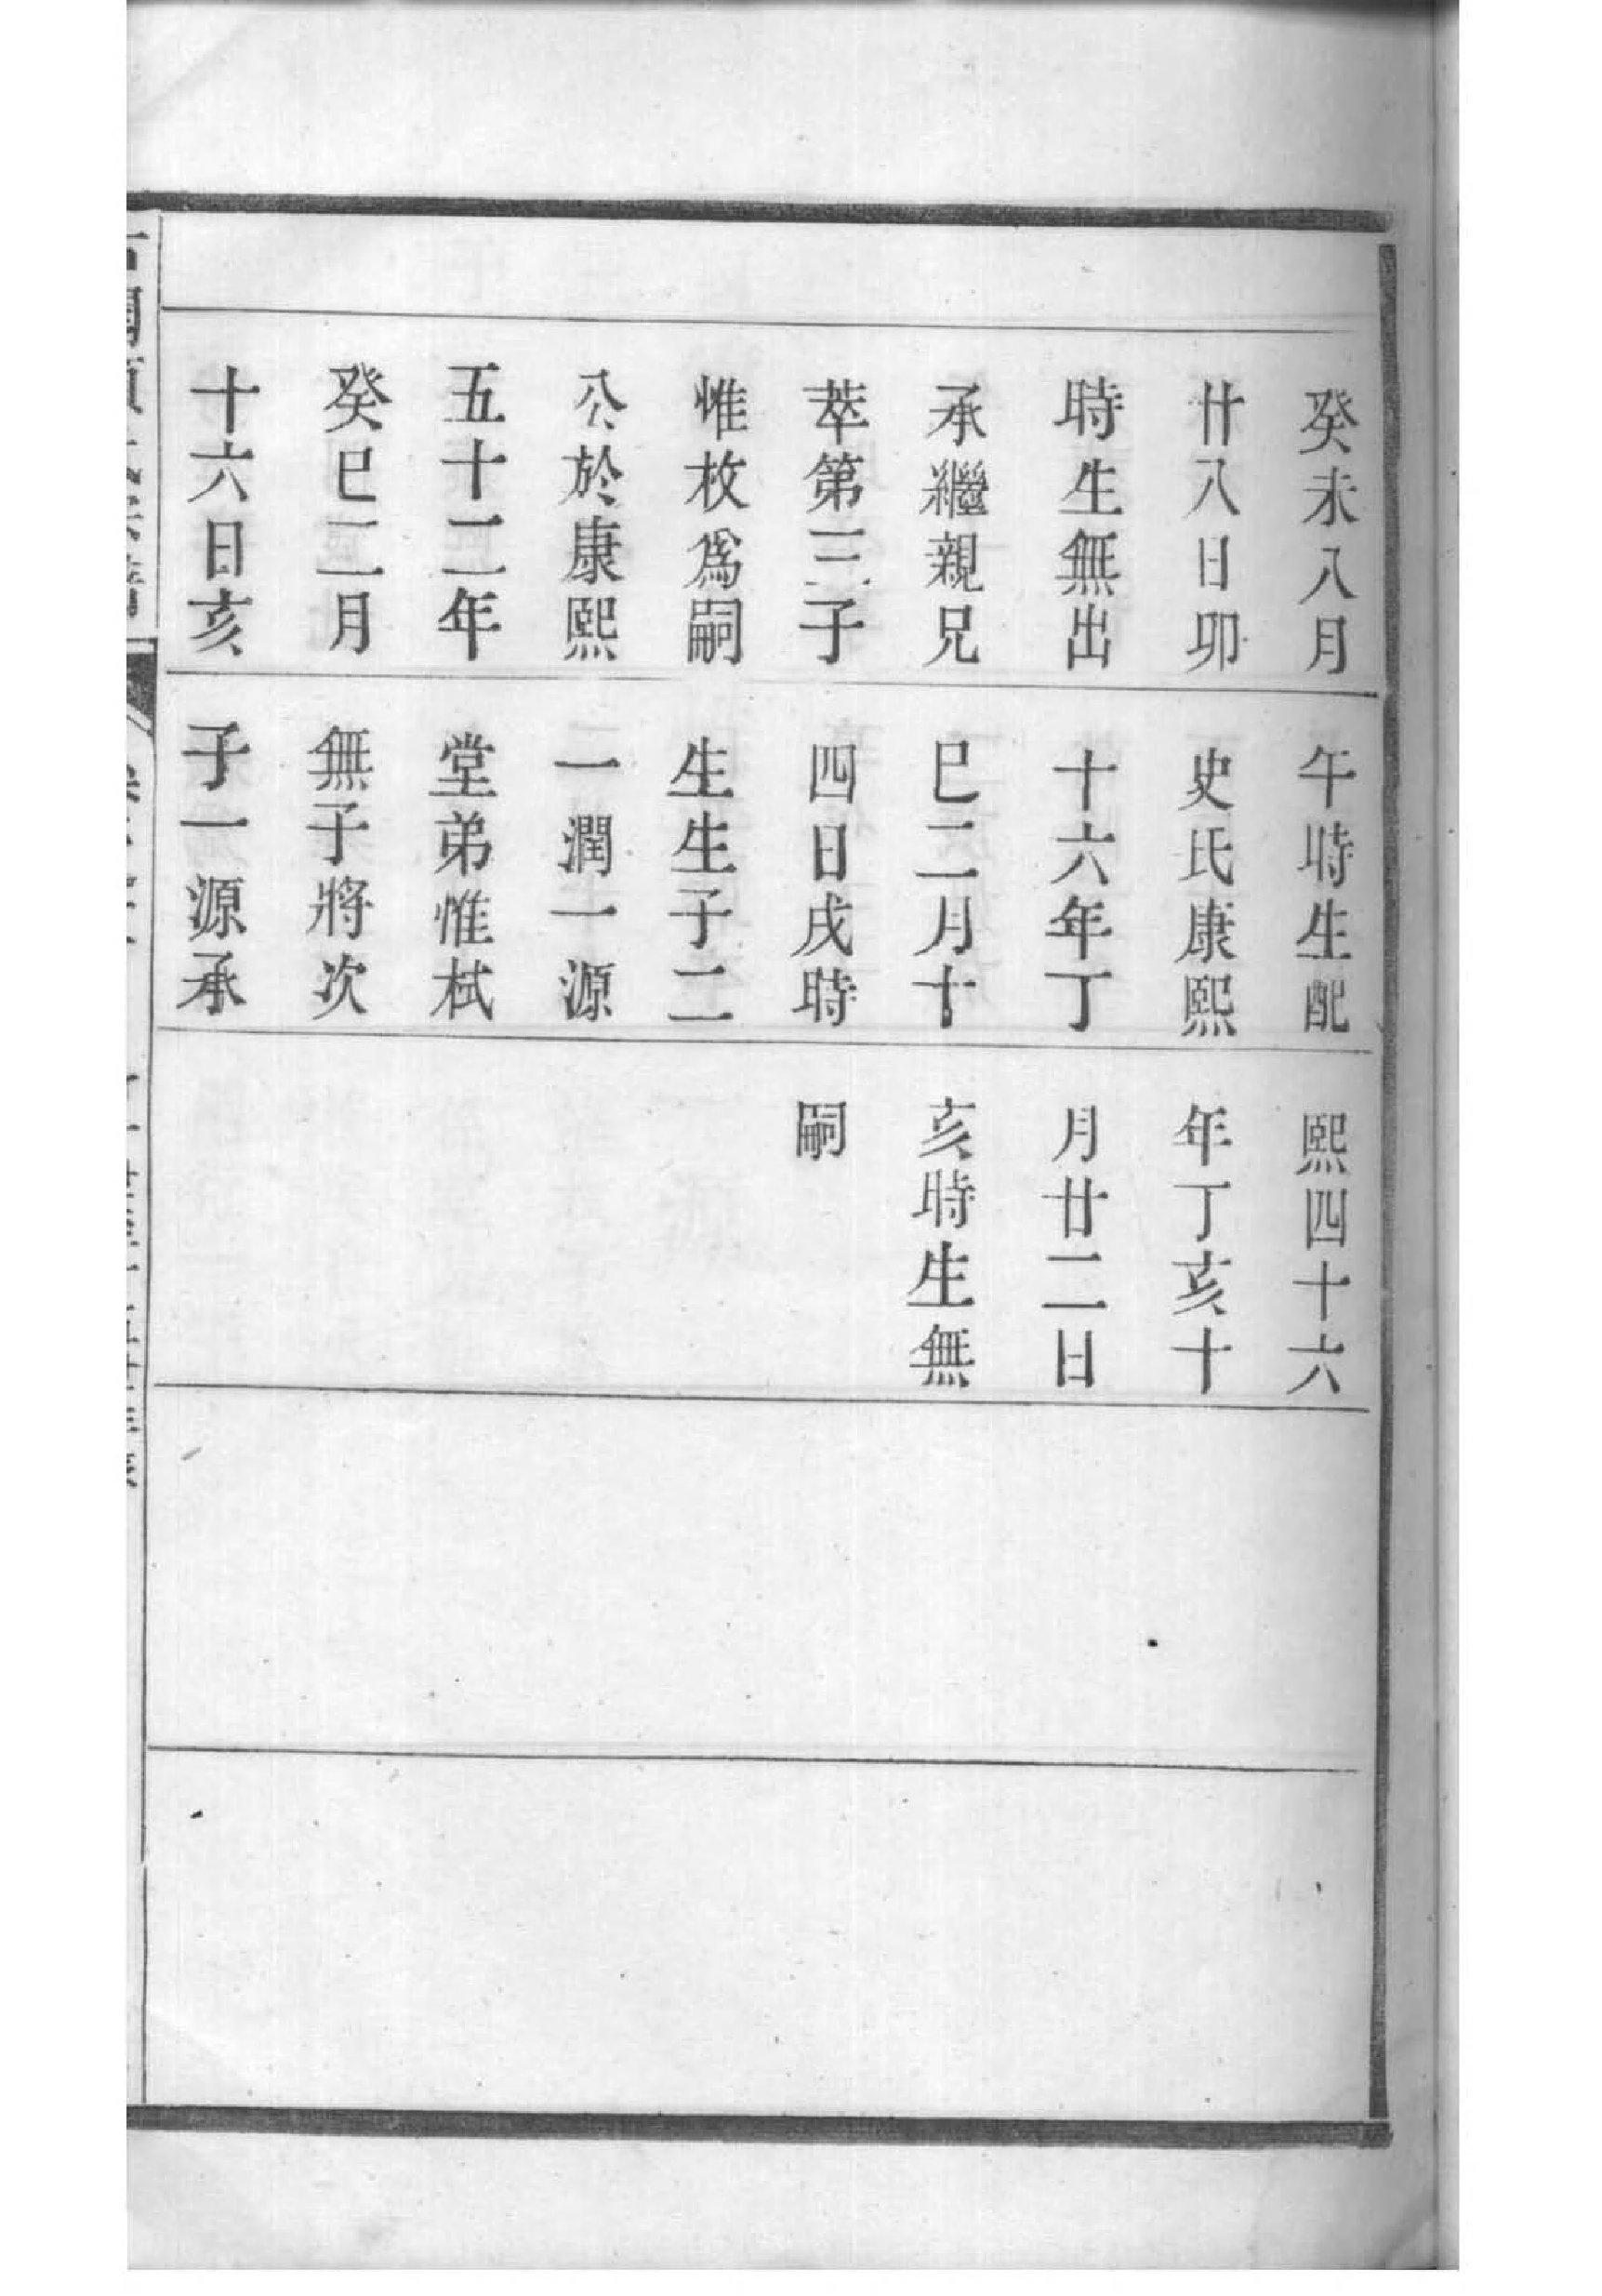 癸未八月
廿八日卯
時生無出
承繼親兄
萃第三子
惟枚爲嗣
公於康熙
五十二年
癸巳二月
十六日亥
午時生配
史氏康熙
十六年丁
巳二月十
四日戌時
生生子二
一潤一源
堂弟惟栻
無子將次
子一源承
熙四十六
年丁亥十
月廿二日
亥時生無
嗣